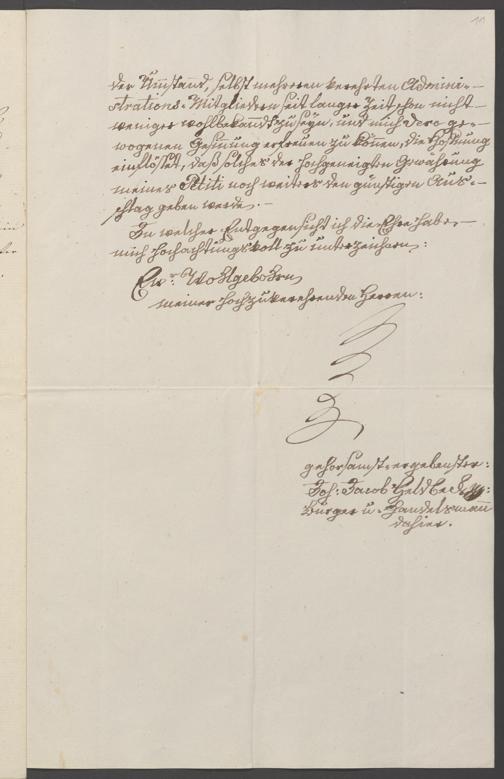 11
der Umstand, selbst mehreren verehrten Admini-
strations-Mitgliedern seit langer Zeit schon nicht
weniger wohlbekandt zu seyn, und mich dero ge-
wogenen Gesinung erfreuen zu könen, die Hoffnung
einflößet, daß solches der hochgeneigten Gewährung
meines Petiti noch weiters den günstigen Aus-
schlag geben werde. -
In welcher Entgegensicht ich die Ehre habe
mich hochachtungsvoll zu unterzeichnen:
Ew:r Wohlgebohrn
meiner hochzuverehrenden Herren:
gehorsamst-ergebenster:
Joh: Jacob Heldbeck
Bürger u. Handelsmann
dahier.